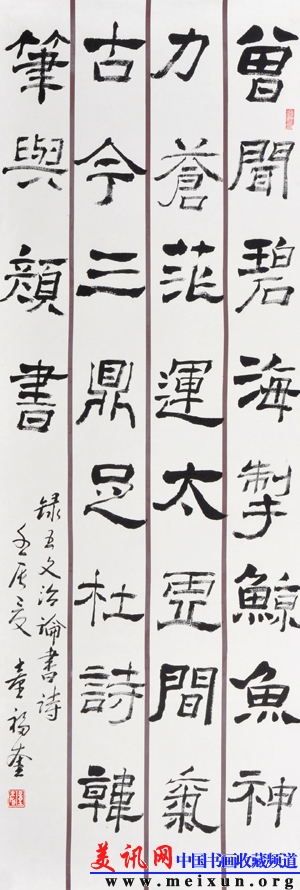 曾聞碧海掣鯨魚神
力蒼茫運太虛間氣
古今三鼎足杜詩韓
筆與顏書
錄王文治論書詩
壬辰夏 福奎
美讯网 中国书画收藏频道
www.meixun.org